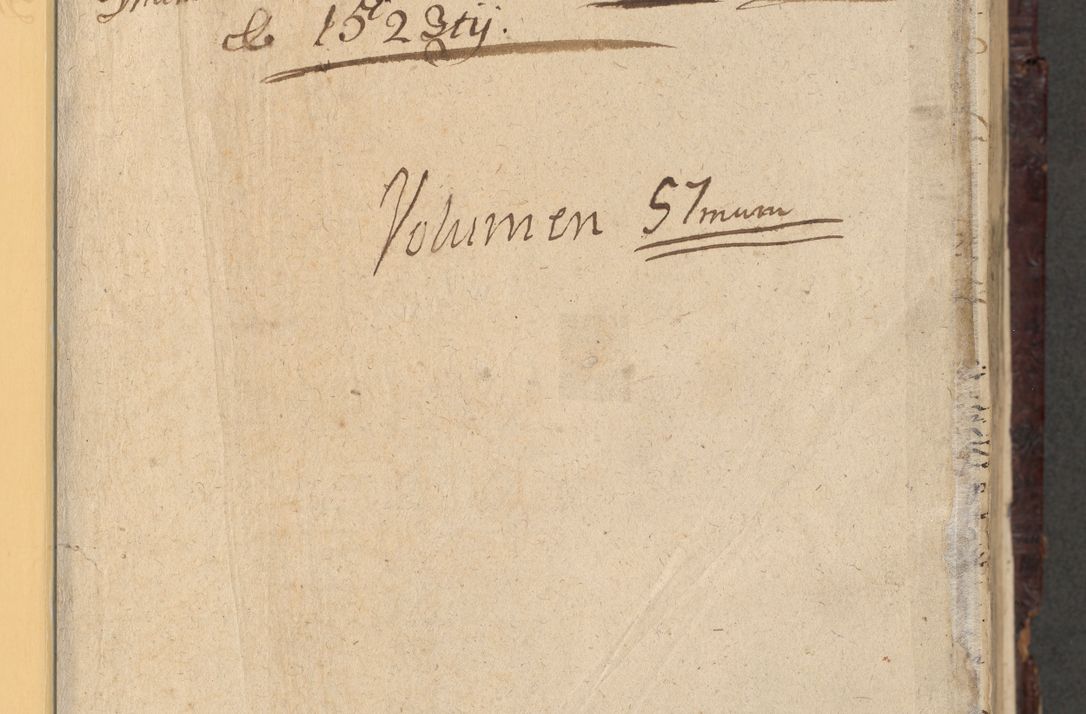 & 15 2 3tij.
Volumen 57mum